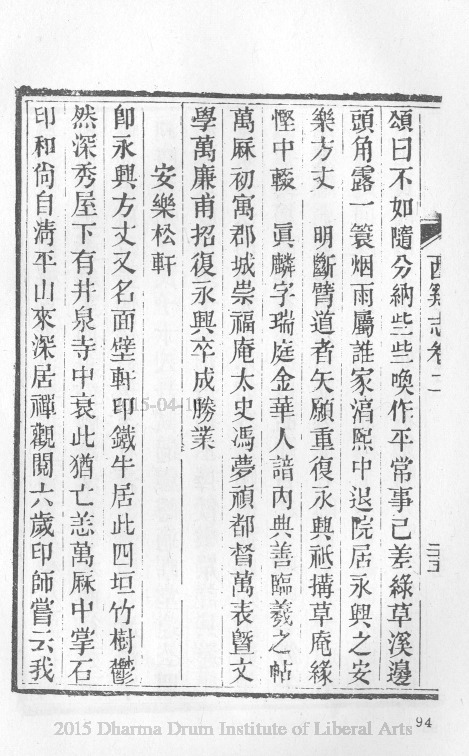 頌曰不如隨分納些些喚作平常事已差綠草溪邊
頭角露一簑烟雨屬誰家淳熙中退院居永興之安
樂方丈　明斷臂道者矢願重復永興祇搆草庵緣
慳中輟　眞麟字瑞庭金華人諳內典善臨羲之帖
萬厤初寓郡城崇福庵太史馮夢禎都督萬表曁文
學萬廉甫招復永興卒成勝業
安樂松軒
卽永興方丈又名面壁軒印鐵牛居此四垣竹樹鬱
然深秀屋下有井泉寺中衰此猶亡恙萬厤中掌石
印和尙自淸平山來深居禪觀閱六歲印師嘗云我
西谿志卷二
三五
94
2015-04-1
2015 Dharma Drum Institute of Liberal Arts